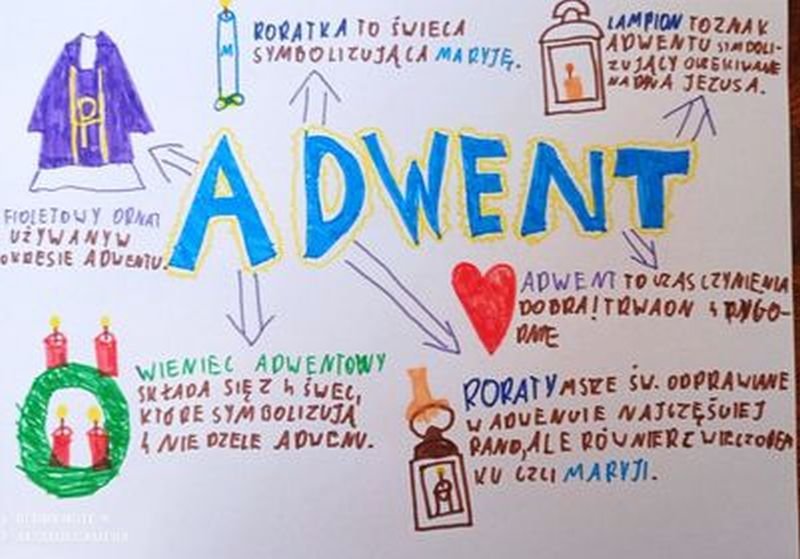 RORATKA TO ŚWIECA
SYMBOLIZUJĄCA MARYJĘ.
M
LAMPION TO ZNAK
ADWENTU SYMBOLI-
ZUJĄCY OCZEKIWANIE
NA PANA JEZUSA.
ADWENT
FIOLETOWY ORNAT
UŻYWANY W
OKRESIE ADWENTU.
ADWENT TO CZAS CZYNIENIA
DOBRA! TRWA ON 4 TYGO-
DNIE
WIENIEC ADWENTOWY
SKŁADA SIĘ Z 4 ŚWIEC,
KTÓRE SYMBOLIZUJĄ
4 NIEDZELE ADWENU.
RORATY MSZE ŚW. ODPRAWIANE
W ADWENCIE NAJCZĘŚCIEJ
RANO, ALE RÓWNIERZ WIECZOREM
KU CZCI MARYJI.